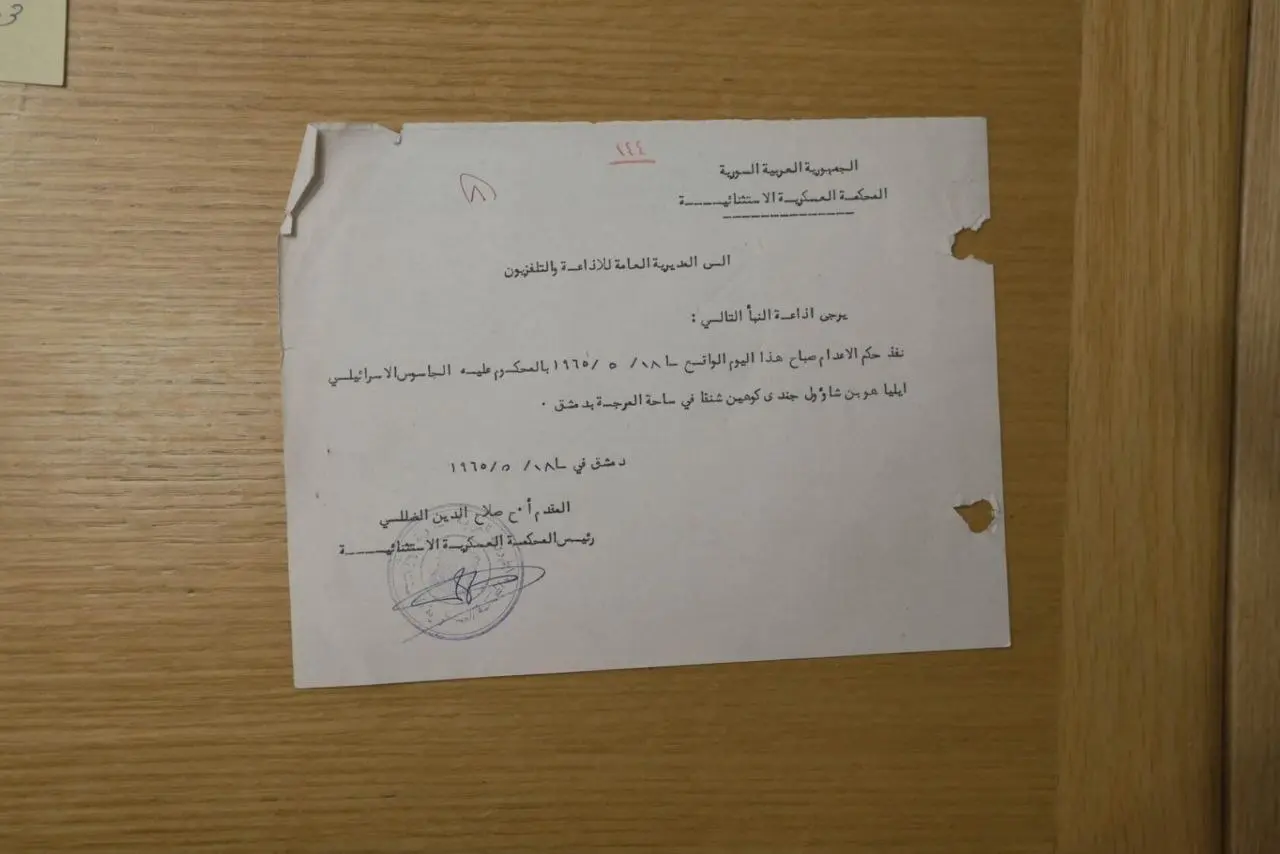 3
١٤٤
٨
الجمهورية العربية السورية
المحكمة العسكريـة الاستثنائيـــــة
الـى المديرية العامة للاذاعـة والتلفزيون
يرجى اذاعـة النبأ التالـي :
نفذ حكم الاعدام صباح هذا اليوم الواقـع ١٨/ ٥ /١٩٦٥ بالمحكـوم عليـه الجاسوس الاسرائيلـي
ايليا هو بن شاؤول جندى كوهين شنقا في ساحة المرجـة بدمشق .
دمشق في ١٨/ ٥ /١٩٦٥
المقدم أ٠ح صلاح الدين الضللـي
رئيس المحكمـة العسكريـة الاستثنائيـــــة